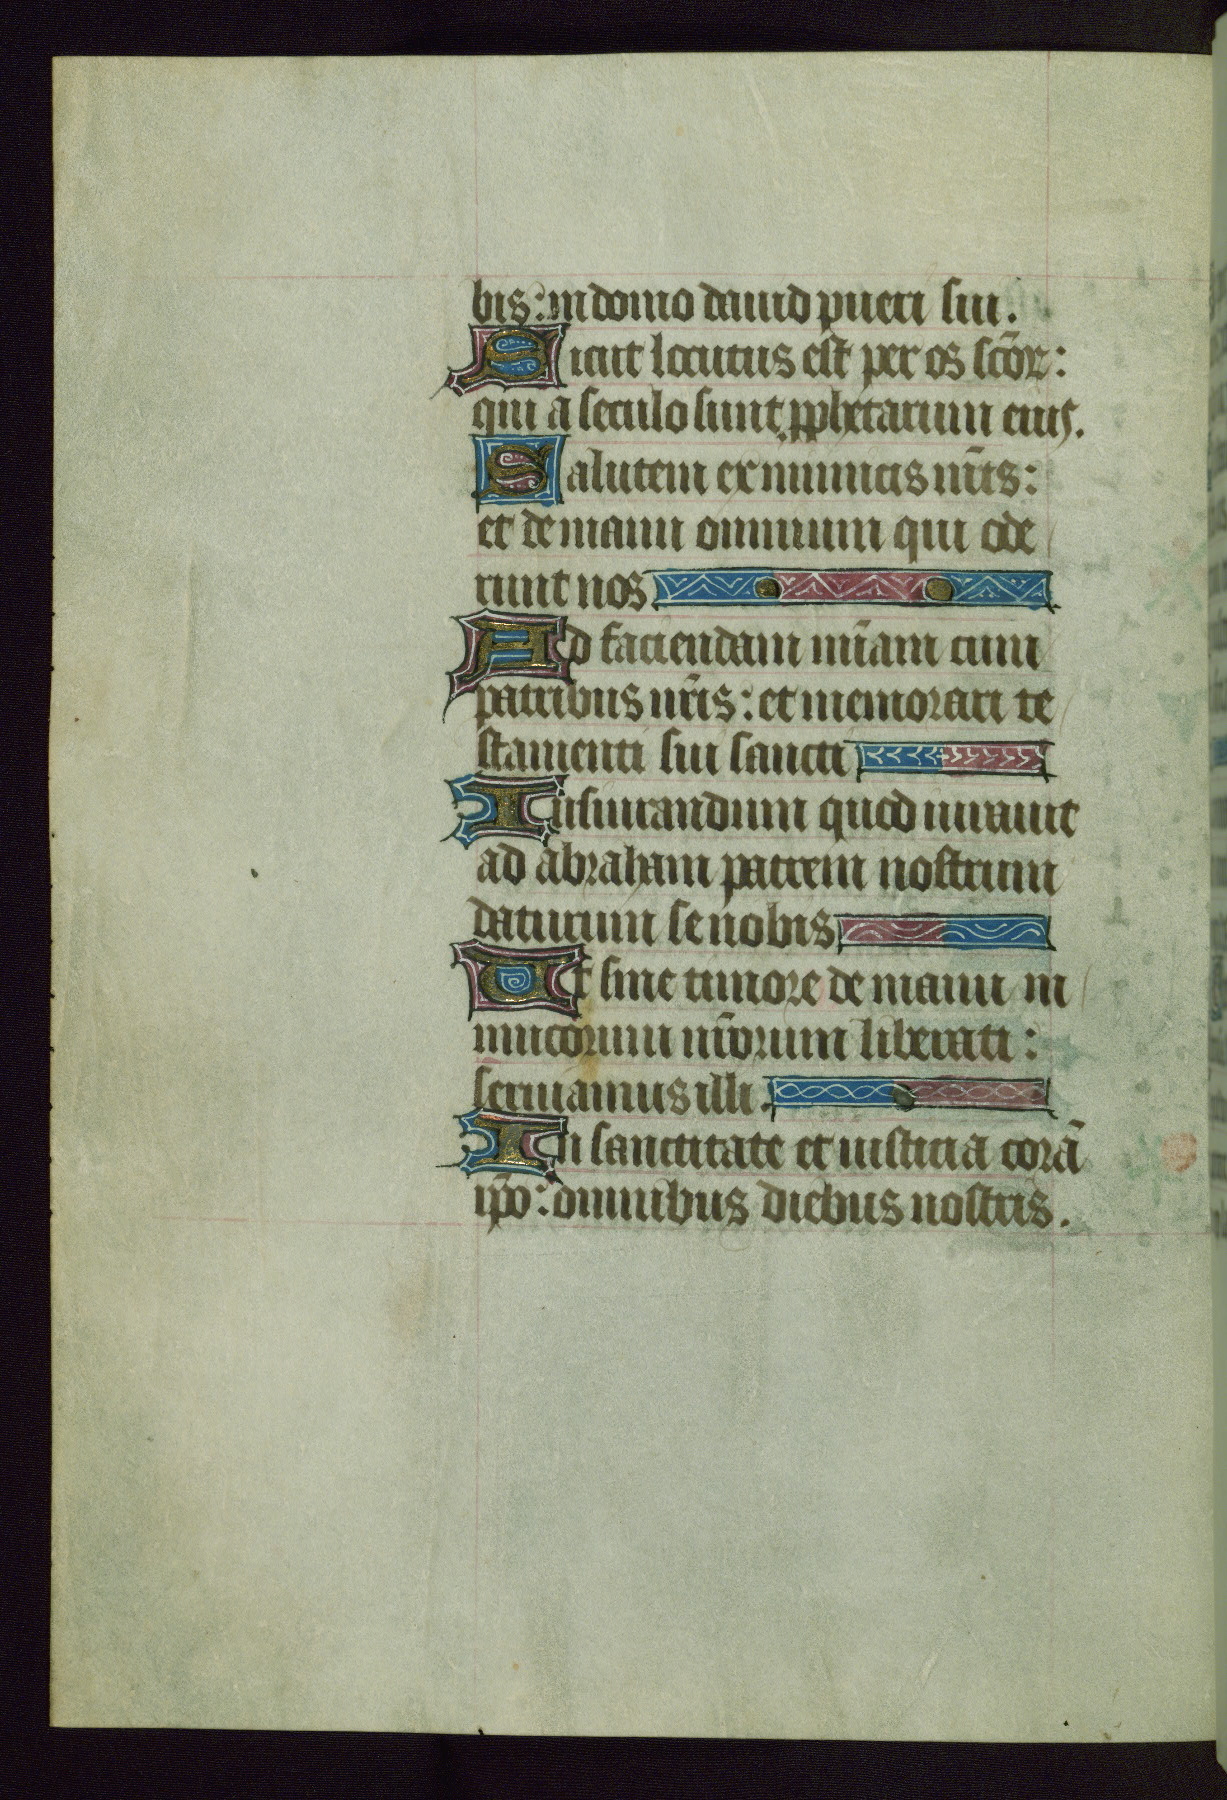 bis: in domo dauid pueri sui.
Sicut locutus est per os sc̄or:
qui a seculo sunt pphetarum eius.
Salutem ex inimicis nr̄is:
et de manu omnium qui ode
runt nos
Ad faciendam mīam cum
patribus nr̄is: et memorari te
stamenti sui sancti
Iusiurandum quod iurauit
ad abraham patrem nostrum
daturum se nobis
Ut sine timore de manu in
imicorum nr̄orum liberati:
seruiamus illi.
In sanctitate et iusticia corā
ip̄o: omnibus diebus nostris.